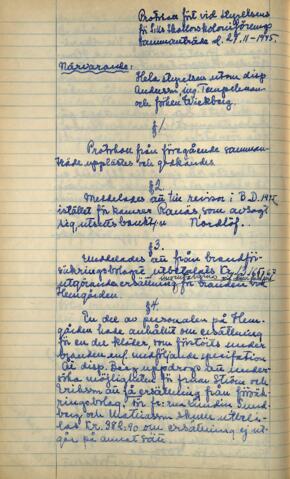 Protokoll fört vid styrelsens
sammanträde d. 29.11-1945.
Närvarande:
Hela styrelsen utom disp.
Andersson, ing. Tempelman
och fröken Wickberg.
§1
Protokoll från föregående samman-
träde upplästes och godkändes.
§2.
Meddelades att till revisor i B.D. 1945
istället för kamrer Ranås, som avsagt
sig, utsetts Nordlöf.
§3.
Meddelades att från brandför-
säkringsbolaget utbetalats Kr.
utgörande ersättning för branden vid
Hemgården.
§4
En del av personalen på Hem-
gården hade anhållit om ersättning
för en del kläder, som förstörts under
branden enl. medföljande specifikation
Åt disp. Berg uppdrogs att under-
söka möjligheten för fröken Ström och
Eriksson att få ersättning från försäk-
ringsbolag. För fr:na Lundin
och Mattiasson skulle utbeta-
las Kr. 382:90 om ersättning ej ut-
går på annat sätt.